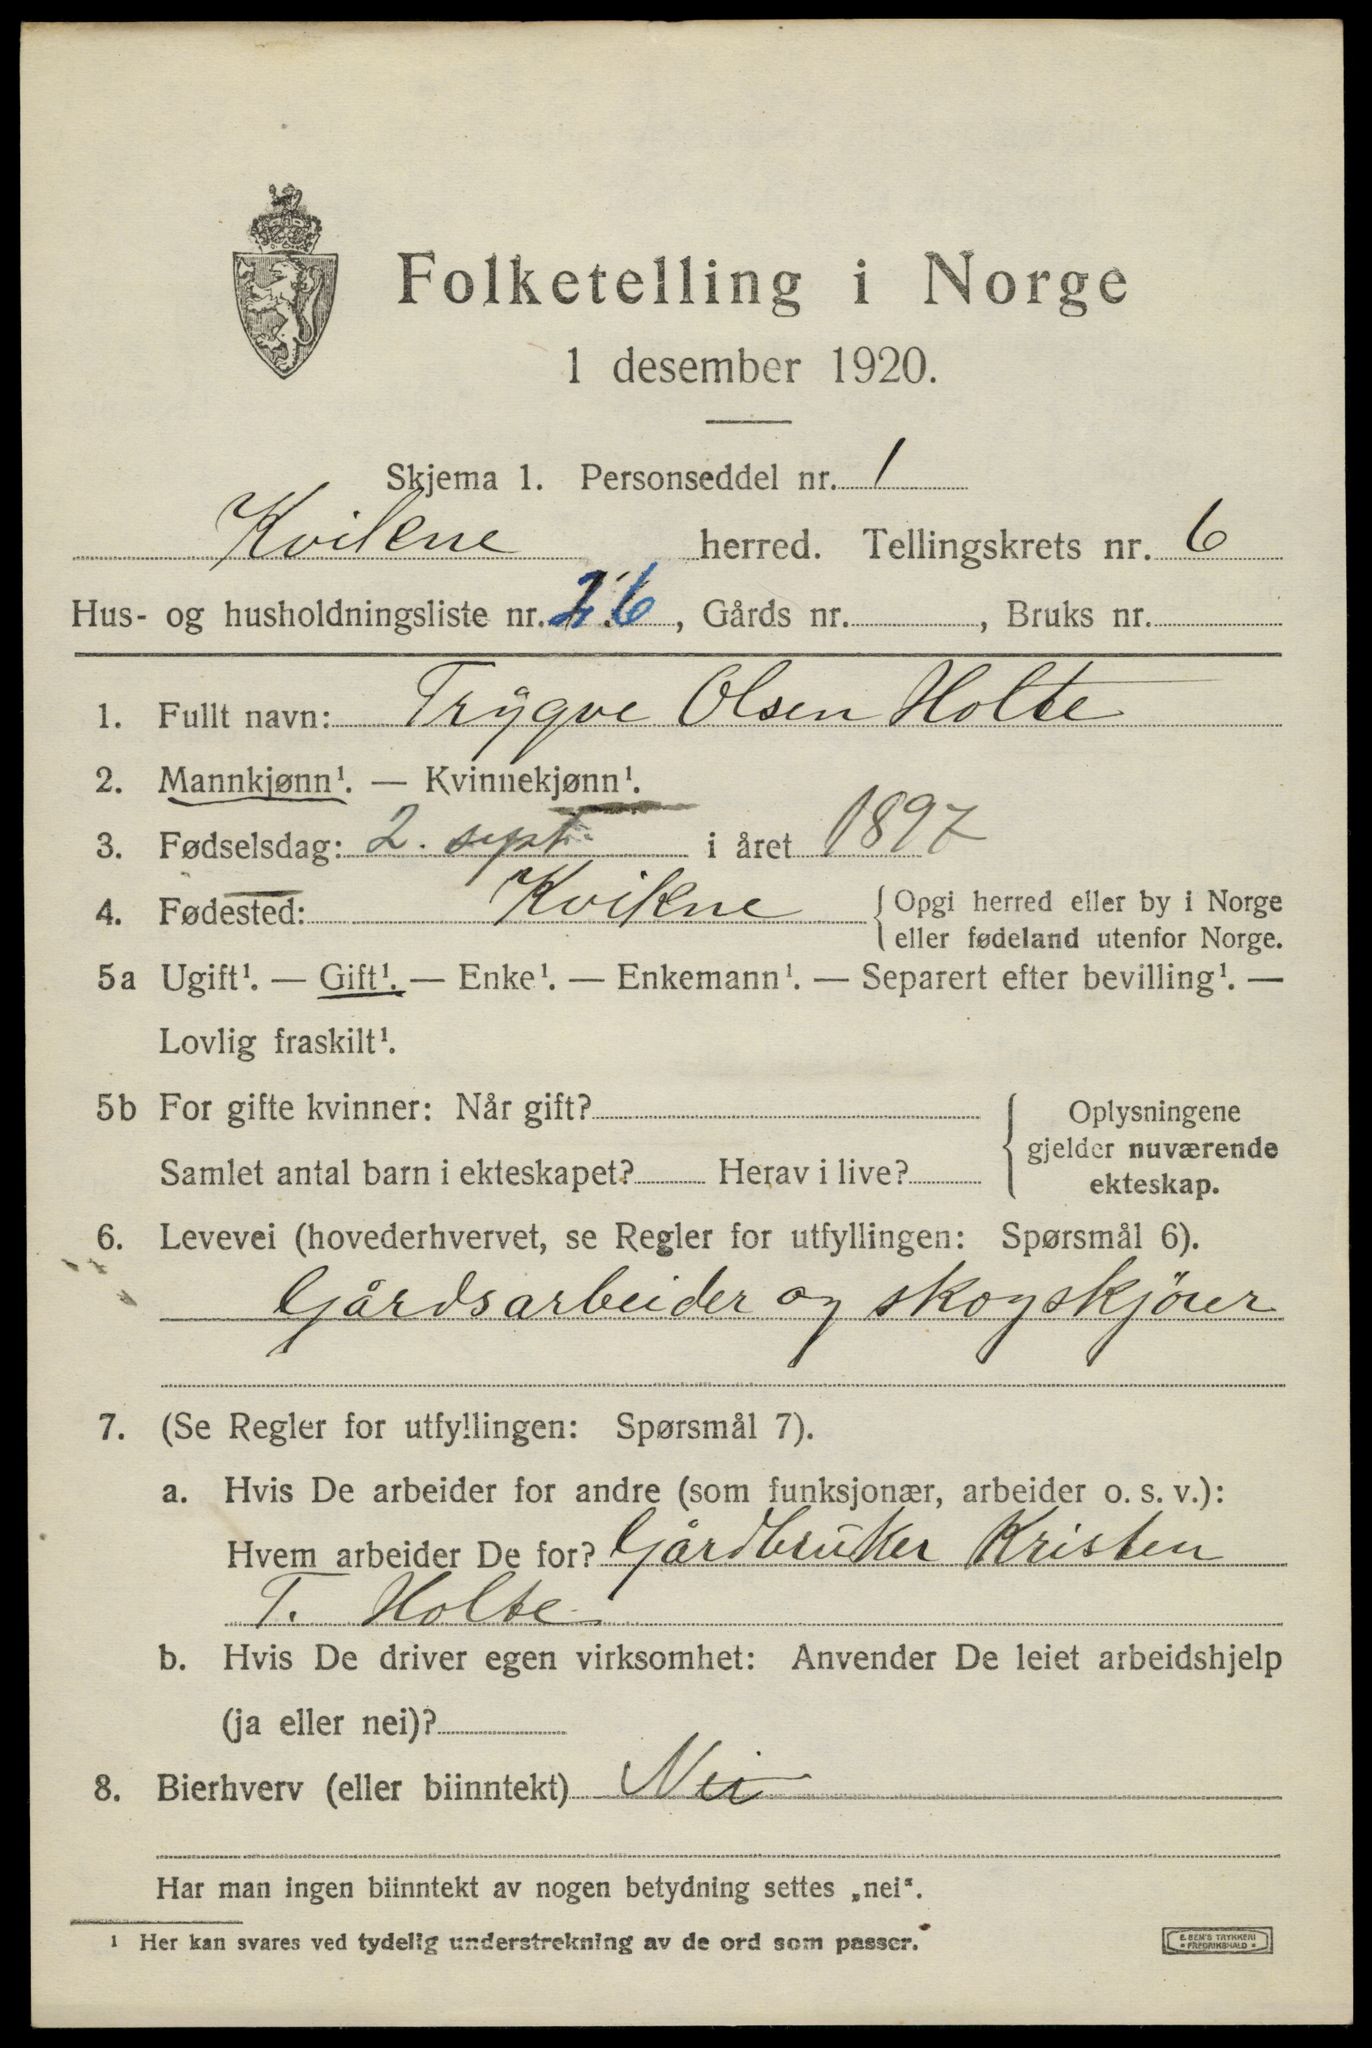 Folketelling i Norge
1 desember 1920.
Skjema 1. Personseddel nr. 1
Kvikne herred. Tellingskrets nr. 6
Hus- og husholdningsliste nr. 26, Gårds nr. , Bruks nr.
1. Fullt navn: Trygve Olsen Holte
2. Mannkjønn¹. — Kvinnekjønn¹.
3. Fødselsdag: 2. sept i året 1897
4. Fødested: Kvikne { Opgi herred eller by i Norge
eller fødeland utenfor Norge.
5a Ugift¹. — Gift¹. — Enke¹. — Enkemann¹. — Separert efter bevilling¹. —
Lovlig fraskilt¹.
5b For gifte kvinner: Når gift? { Oplysningene
gjelder nuværende
Samlet antal barn i ekteskapet? Herav i live? ekteskap.
6. Levevei (hovederhvervet, se Regler for utfyllingen: Spørsmål 6).
Gårdsarbeider og skogskjörer
7. (Se Regler for utfyllingen: Spørsmål 7).
a. Hvis De arbeider for andre (som funksjonær, arbeider o. s. v.):
Hvem arbeider De for? Gårdbruker Kristen
T. Holte
b. Hvis De driver egen virksomhet: Anvender De leiet arbeidshjelp
(ja eller nei)?
8. Bierhverv (eller biinntekt) Nei
Har man ingen biinntekt av nogen betydning settes „nei".
¹ Her kan svares ved tydelig understrekning av de ord som passer.
E. SEM'S TRYKKERI
• FREDRIKSHALD •